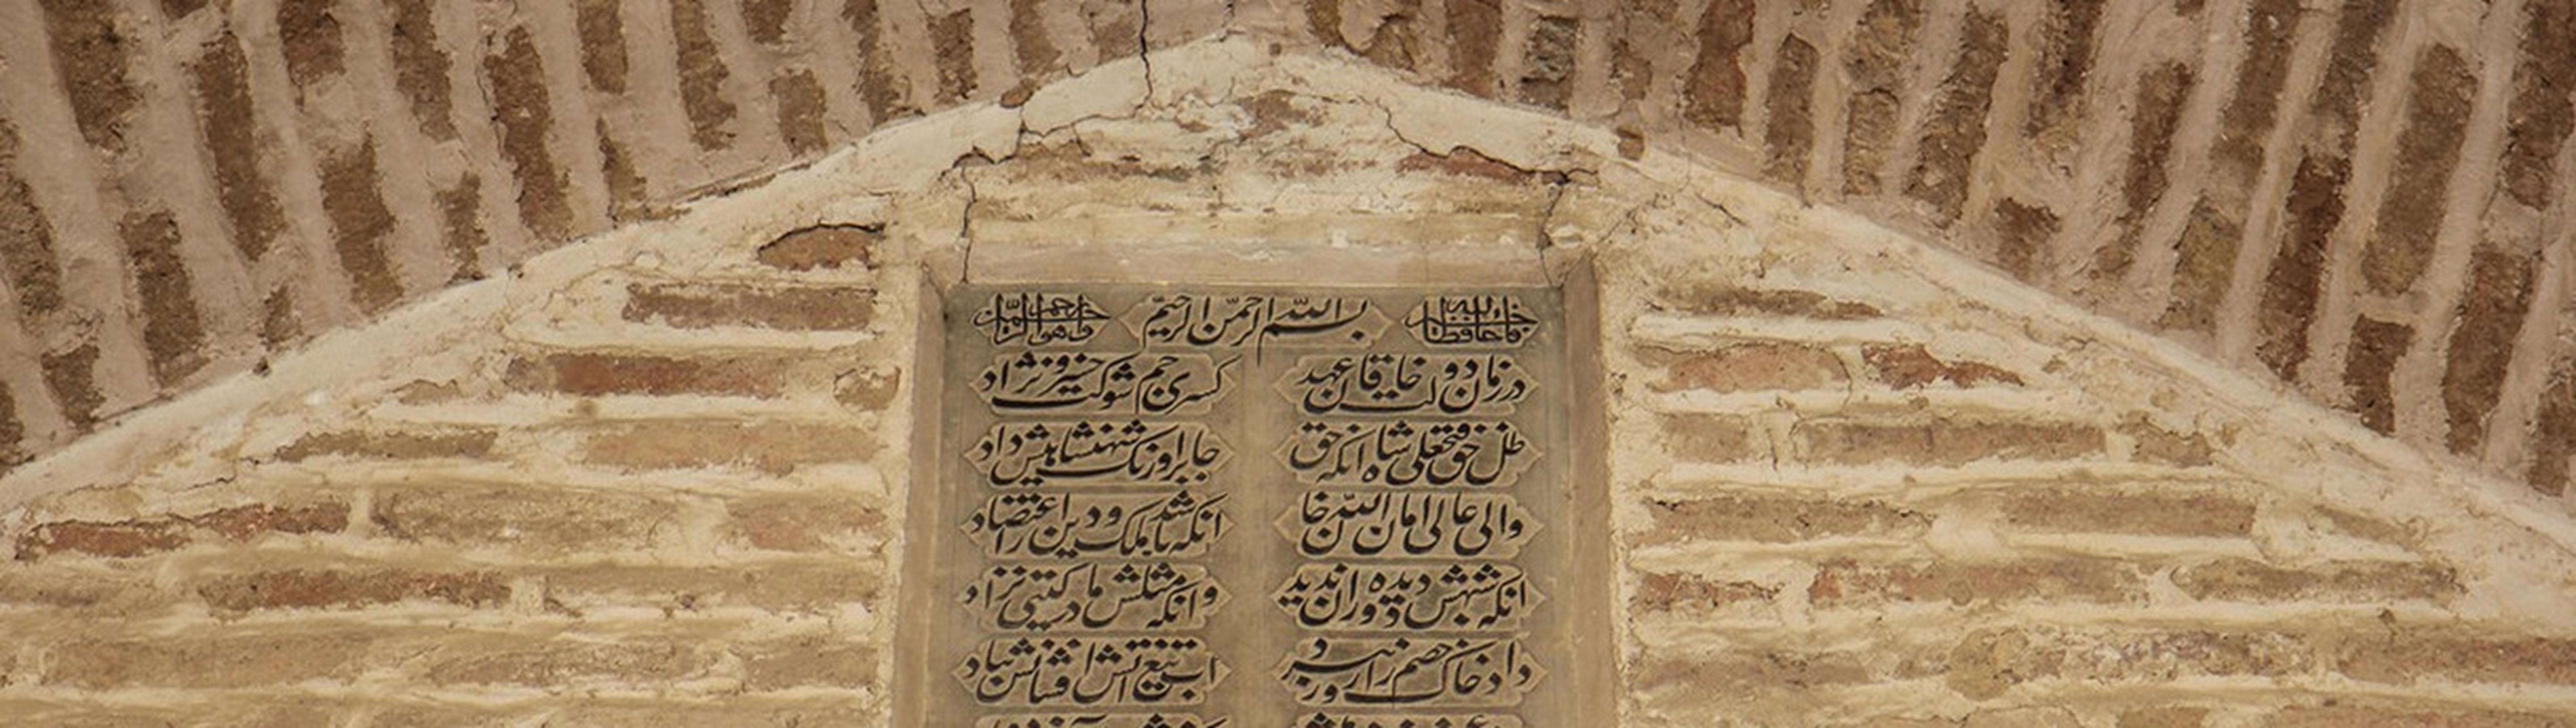 فالله خیر حافظا بسم الله الرحمن الرحیم وهو ارحم الراحمین
در زمان دولت خاقان عهد کسری جم شوکت خسرو نژاد
ظل حق فتحعلی شاه انکه حق جا بر اورنک شهنشاهیش داد
والی عالی امان الله خان انکه شد با ملک و دین را اعتضاد
انکه شبهش دیده دوران ندید وانکه مثلش مادر کیتی نزاد
داد خاک خصم را در نبرد اب تیغ اتش افشانش بباد